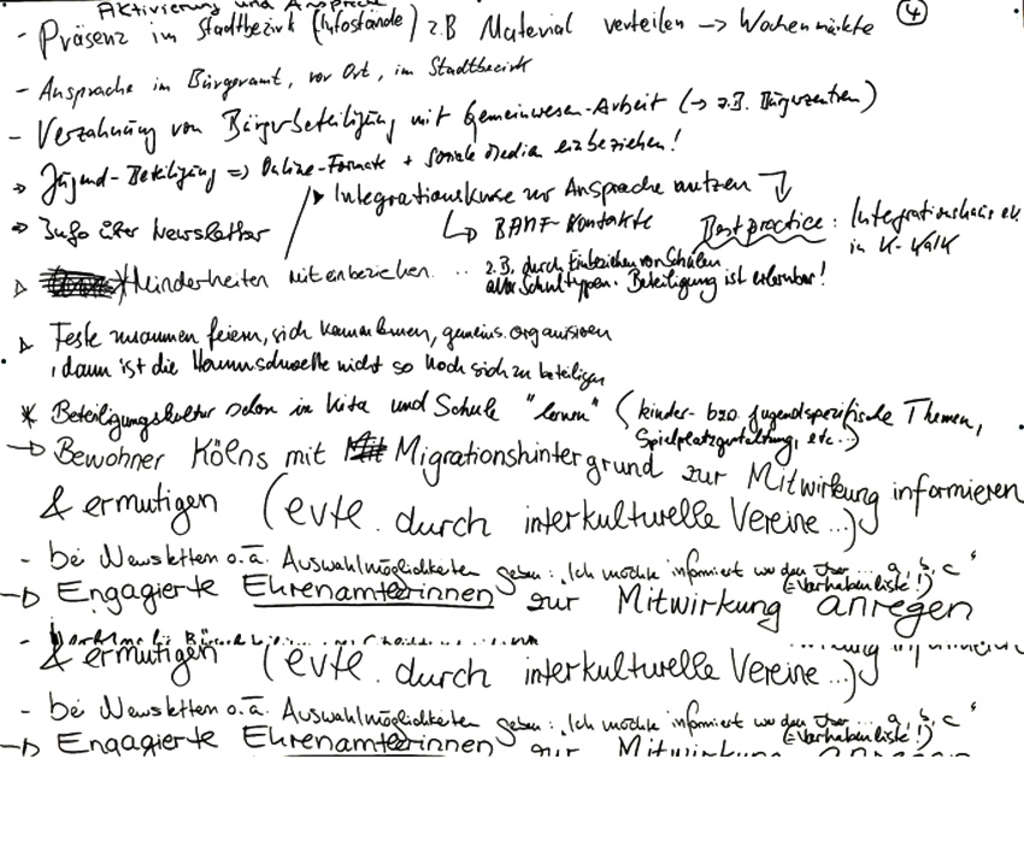 Aktivierung und Ansprache
④
- Präsenz im Stadtbezirk (Infostände) z.B Material verteilen -> Wochenmärkte
- Ansprache im Bürgeramt, vor Ort, im Stadtbezirk
- Verzahnung von Bürgerbeteiligung mit Gemeinwesen-Arbeit (-> z.B. Bürgerzentren)
-> Jugend-Beteiligung => Online-Formate + Soziale Media einbeziehen!
▶ Integrationskurse zur Ansprache nutzen
-> Info über Newsletter
↳ BAMF Kontakte Best practice: Integrationshaus e.V.
in K-Kalk
▷ Minderheiten miteinbeziehen...
z.B. durch Einbeziehen von Schulen
aller Schultypen. Beteiligung ist erlernbar!
▷ Feste zusammen feiern, sich kennenlernen, gemeins. organisieren
, dann ist die Hemmschwelle nicht so hoch sich zu beteiligen
* Beteiligungskultur schon in Kita und Schule "lernen" (kinder- bzw. jugendspezifische Themen,
Spielplatzgestaltung, etc...)
-> Bewohner Kölns mit Migrationshintergrund zur Mitwirkung informieren
& ermutigen (evtl. durch interkulturelle Vereine...)
- bei Newslettern o.ä. Auswahlmöglichkeiten geben: "Ich möchte informiert werden über ... a, b, c"
(=Vorhabenliste!)
-> Engagierte Ehrenamtlerinnen zur Mitwirkung anregen
& ermutigen (evtl. durch interkulturelle Vereine...)
- bei Newslettern o.ä. Auswahlmöglichkeiten geben: "Ich möchte informiert werden über ... a, b, c"
(=Vorhabenliste!)
-> Engagierte Ehrenamtlerinnen zur Mitwirkung anregen